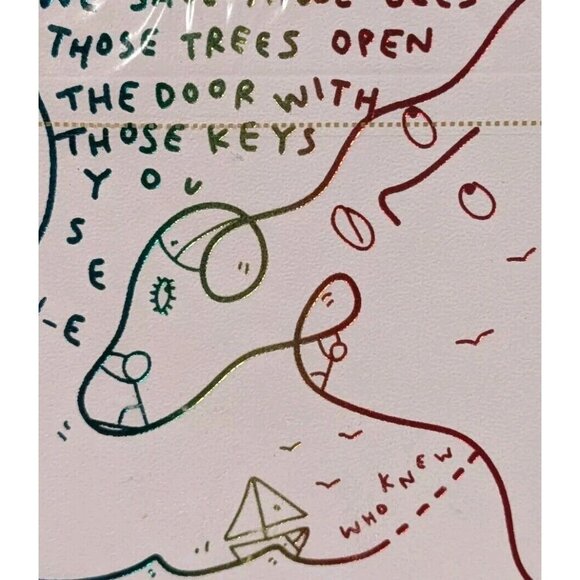 THOSE TREES OPEN
THE DOOR WITH
THOSE KEYS
YOU
SEE
WHO KNEW